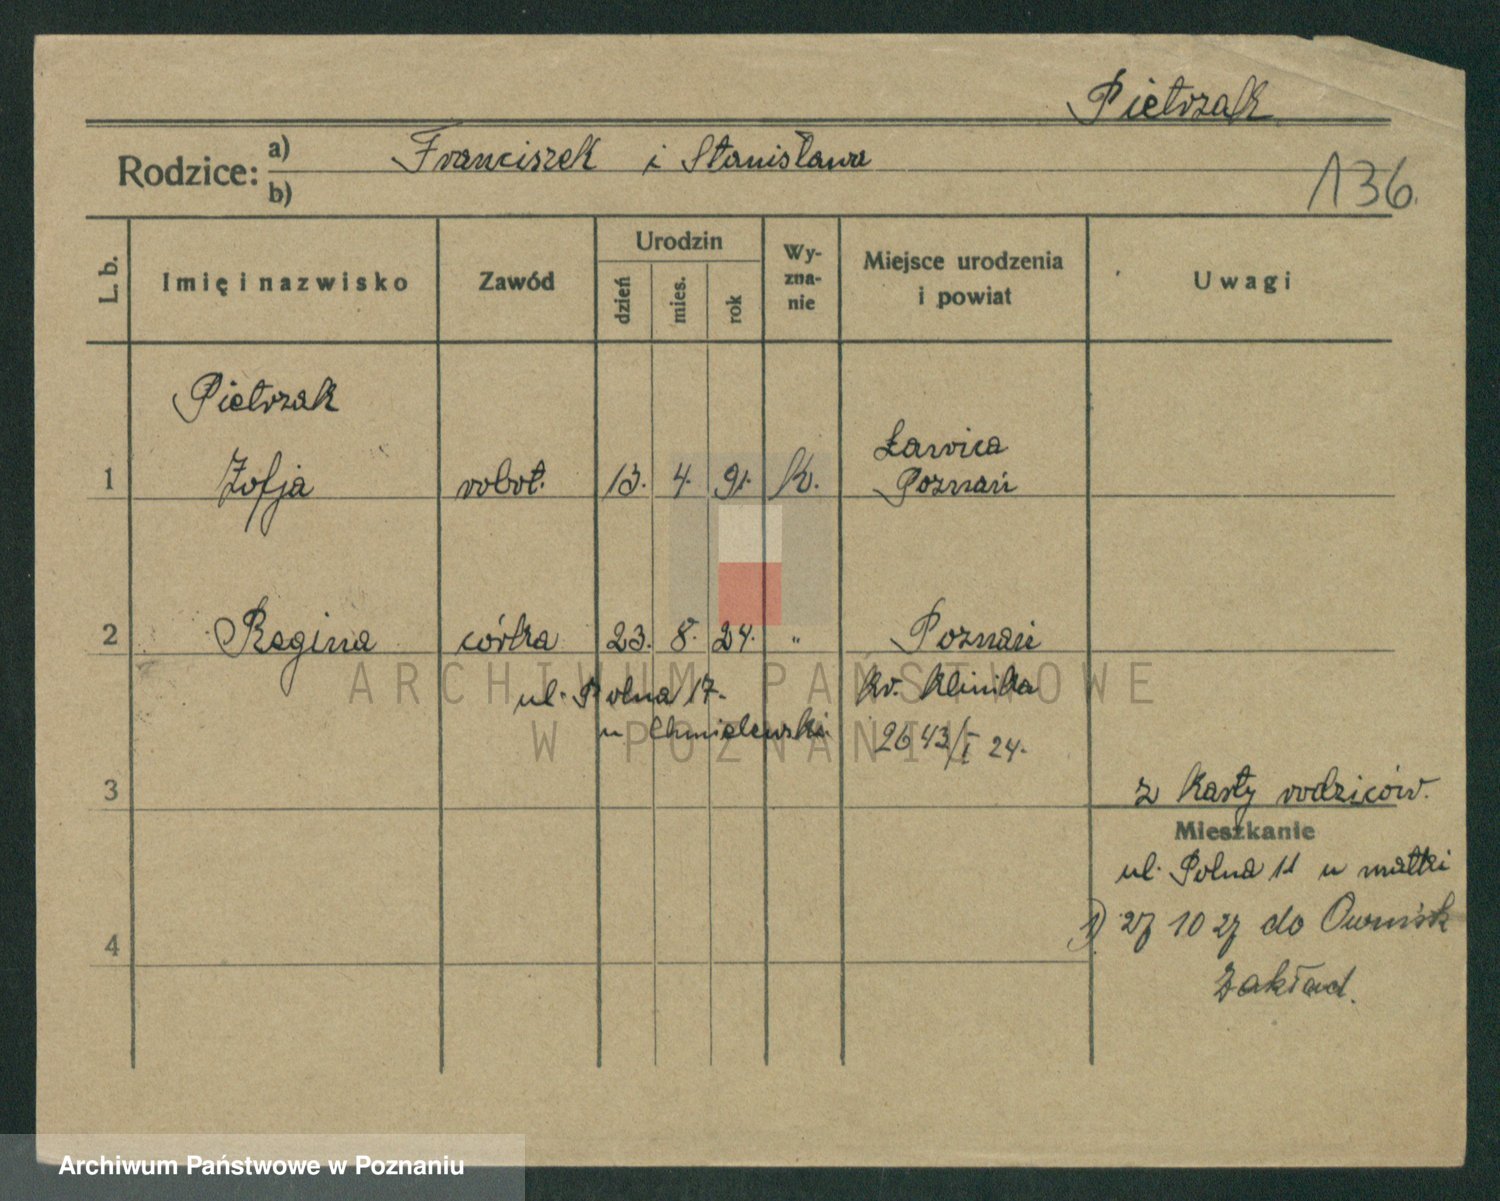 Pietrzak
Rodzice: a) Franciszek i Stanisława
b)
136.
L. b. Imię i nazwisko Zawód Urodzin dzień mies. rok Wy-zna-nie Miejsce urodzenia i powiat Uwagi
Pietrzak
1 Zofja robot. 13. 4. 91. K. Ławica Poznań
2 Regina córka 23. 8. 24. " Poznań
ul. Polna 17. Kr. Klinika
u Chmielewski 2643/I 24.
3 z karty rodziców.
Mieszkanie
ul. Polna 11 u matki
1) 27 10 27 do Owińsk
4
Zakład.
ARCHIWUM PAŃSTWOWE
W POZNANIU
Archiwum Państwowe w Poznaniu